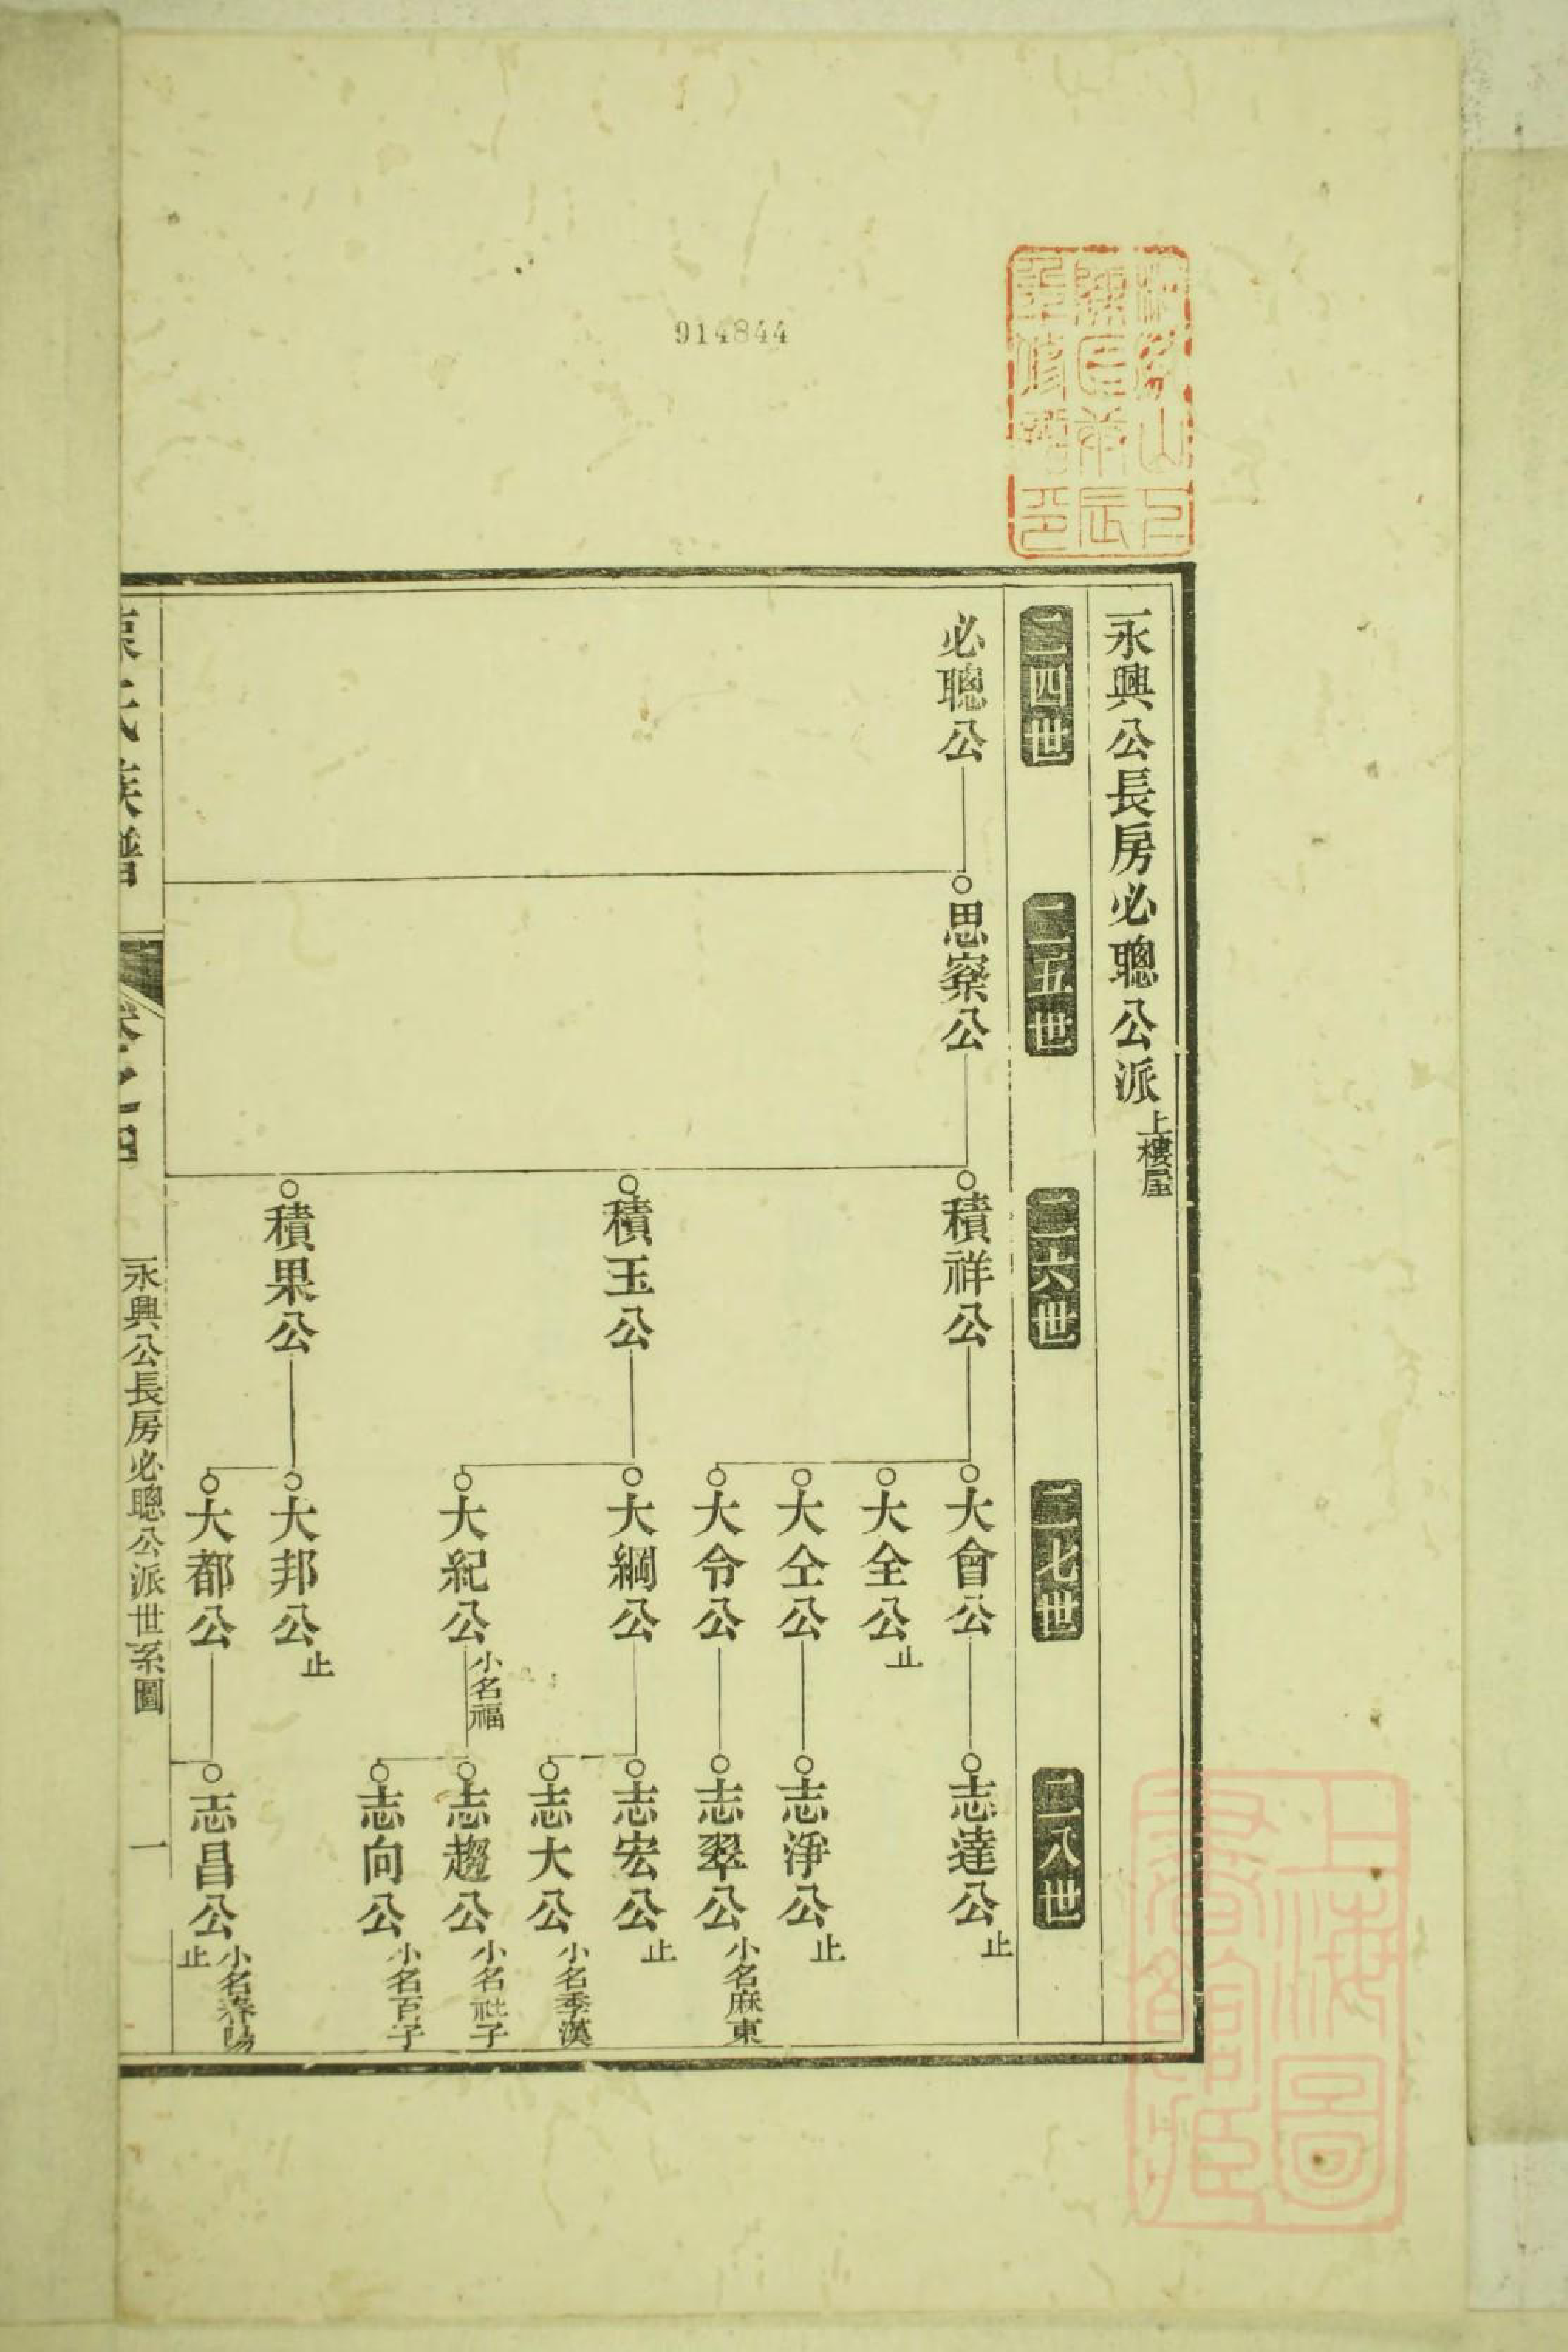 914844
永興公長房必聰公派上樓屋
二四世
二五世
二六世
二七世
二八世
必聰公
思察公
積祥公
大會公
志達公止
大全公止
大仝公
志淨公止
大令公
志翠公小名麻東
積玉公
大綱公
志宏公止
志大公小名季漢
大紀公小名福
志趨公小名社子
志向公小名百子
積果公
大邦公止
大都公
志昌公小名春陽止
氏族譜
卷之四
永興公長房必聰公派世系圖
一
上海圖書館藏